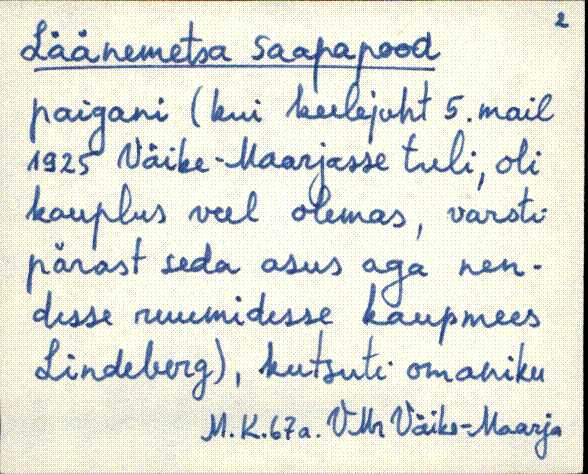 2
Läänemetsa saapapood
paigani (kui keelejuht 5. mail
1925 Väike-Maarjasse tuli, oli
kauplus veel olemas, varsti
pärast seda asus aga nen-
desse ruumidesse kaupmees
Lindeberg), kutsuti omaniku
M.K.67a. VMr Väike-Maarja